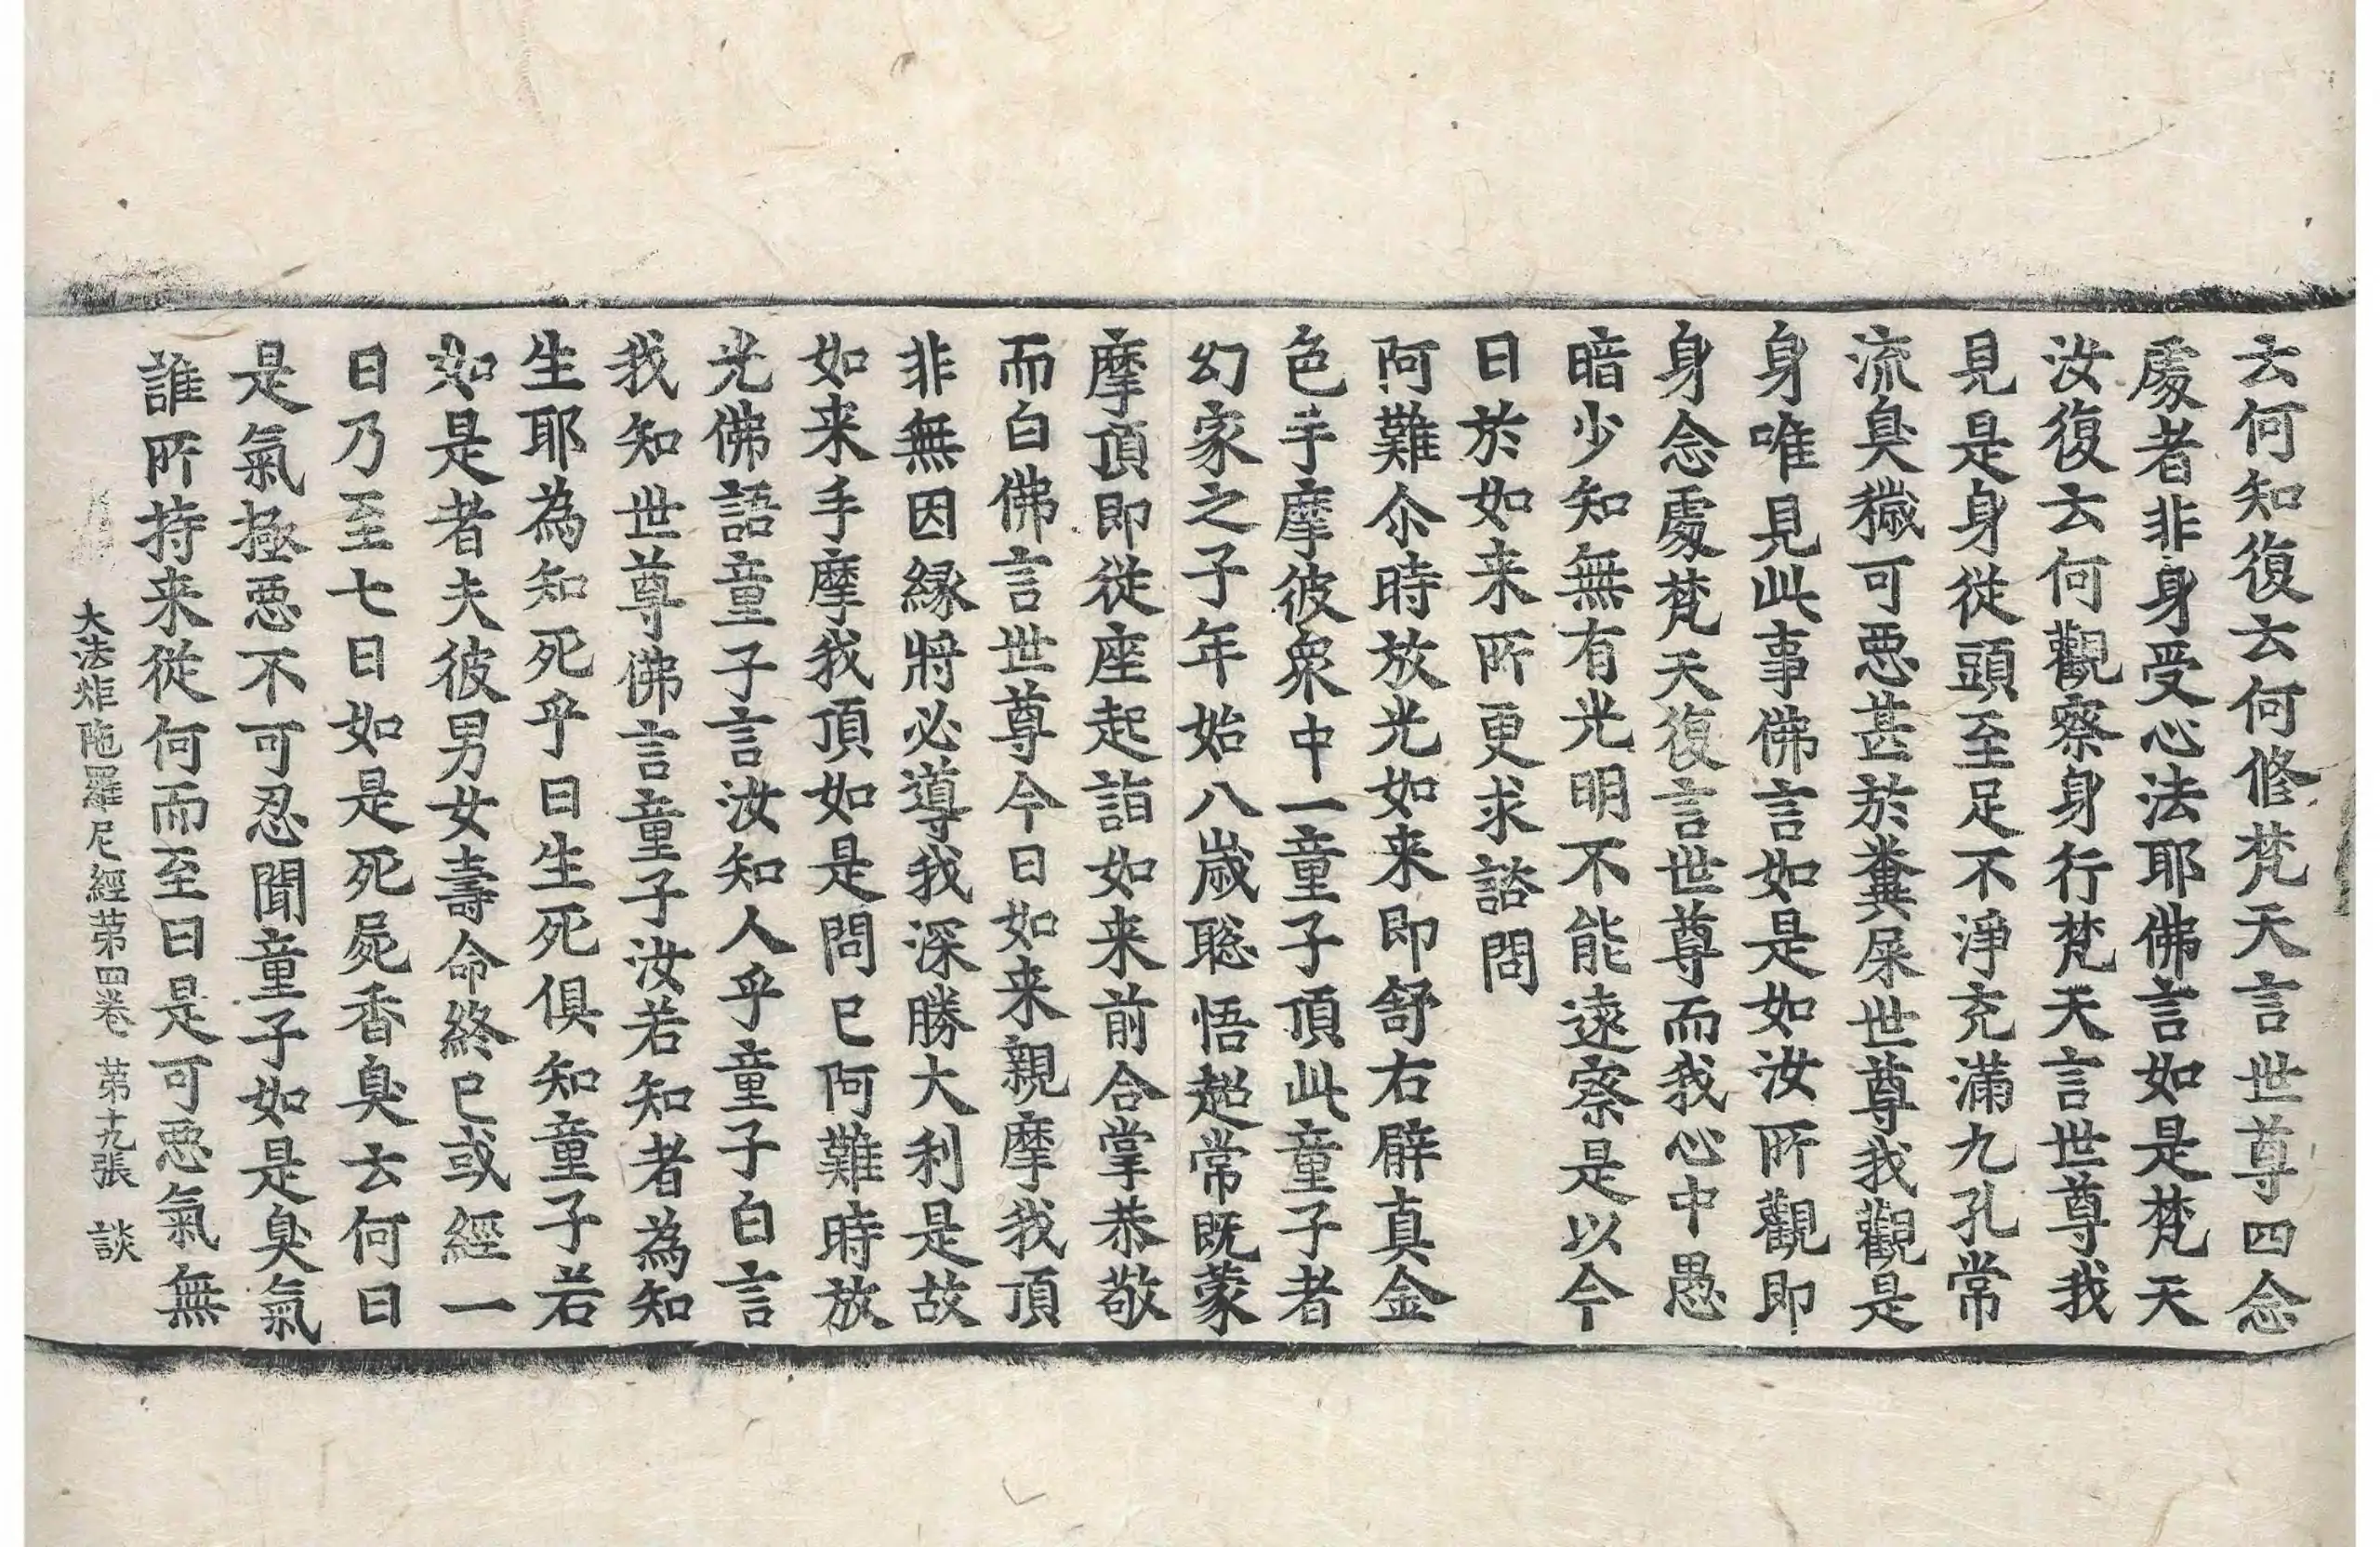 云何知復云何修梵天言世尊四念
處者非身受心法耶佛言如是梵天
汝復云何觀察身行梵天言世尊我
見是身從頭至足不淨充滿九孔常
流臭穢可惡甚於糞屎世尊我觀是
身唯見此事佛言如是如汝所觀即
身念處梵天復言世尊而我心中愚
暗少知無有光明不能遠察是以今
日於如来所更求諮問
阿難尒時放光如来即舒右臂真金
色手摩彼衆中一童子頂此童子者
幻家之子年始八歲聡悟超常既蒙
摩頂即從座起詣如来前合掌恭敬
而白佛言世尊今日如来親摩我頂
非無因緣將必導我深勝大利是故
如来手摩我頂如是問已阿難時放
光佛語童子言汝知人乎童子白言
我知世尊佛言童子汝若知者為知
生耶為知死乎曰生死俱知童子若
如是者夫彼男女壽命終已或經一
日乃至七日如是死屍香臭云何曰
是氣極惡不可忍聞童子如是臭氣
誰所持来從何而至曰是可惡氣無
大法炬陁羅尼經第四卷 第十九張 談